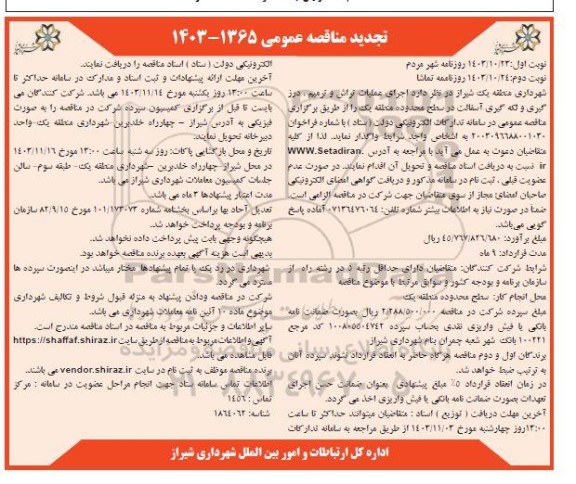 تجدید مناقصه عمومی ۱۳۶۵-۱۴۰۳
نوبت اول:۱۴۰۳/۱۰/۲۳ روزنامه شهر مردم
نوبت دوم:۱۴۰۳/۱۰/۲۴ روزنامه تماشا
شهرداری منطقه یک شیراز در نظر دارد اجرای عملیات تراش و ترمیم، درز
گیری و لکه گیری آسفالت در سطح محدوده منطقه یک را از طریق برگزاری
مناقصه عمومی در سامانه تدارکات الکترونیکی دولت (ستاد) با شماره فراخوان
۲۰۰۳۰۹۶۶۸۸۰۰۱۰۳۰ به اشخاص واجد شرایط واگذار نماید. لذا از کلیه
متقاضیان دعوت به عمل می آید با مراجعه به آدرس WWW.Setadiran.
ir نسبت به دریافت اسناد مناقصه و تحویل آن اقدام نمایند. در صورت عدم
عضویت قبلی، ثبت نام در سامانه مذکور و دریافت گواهی امضای الکترونیکی
صاحبان امضای مجاز از سوی متقاضیان جهت شرکت در مناقصه الزامی است.
ضمنا در صورت نیاز به اطلاعات بیشتر شماره تلفن: ۰۷۱۳۶۴۷۶۰۶۴ آماده پاسخ
گویی می‌باشد.
مبلغ برآورد: ۴۵/۷۶۷/۸۲۶/۶۸۰ ریال
مدت قرارداد: ۹ ماه
شرایط شرکت کنندگان: متقاضیان دارای حداقل رتبه ۵ در رشته راه از
سازمان برنامه و بودجه کشور و سوابق مرتبط با موضوع مناقصه
محل انجام کار: سطح محدوده منطقه یک
مبلغ سپرده شرکت در مناقصه ۲/۲۸۸/۵۰۰/۰۰۰ ریال بصورت ضمانت نامه
بانکی یا فیش واریزی نقدی بحساب سپرده ۱۰۰۸۰۵۵۰۴۷۴۲ کد مرجع
۱۰۰۲۲۱ بانک شهر شعبه چمران بنام شهرداری شیراز
برندگان اول و دوم مناقصه هرگاه حاضر به انعقاد قرارداد نشوند سپرده آنان
به ترتیب ضبط خواهد شد.
در زمان انعقاد قرارداد ۵٪ مبلغ پیشنهادی بعنوان ضمانت حسن اجرای
تعهدات بصورت ضمانت نامه بانکی یا فیش واریزی اخذ می گردد.
آخرین مهلت دریافت (توزیع) اسناد: متقاضیان میتوانند حداکثر تا ساعت
۱۳:۰۰روز چهارشنبه مورخ ۱۴۰۳/۱۱/۰۳ از طریق مراجعه به سامانه تدارکات
الکترونیکی دولت (ستاد) اسناد مناقصه را دریافت نمایند.
آخرین مهلت ارائه پیشنهادات و ثبت اسناد و مدارک در سامانه حداکثر تا
ساعت ۱۳:۰۰ روز یکشنبه مورخ ۱۴۰۳/۱۱/۱۴ می باشد. شرکت کنندگان می
بایست تا قبل از برگزاری کمیسیون سپرده شرکت در مناقصه را به صورت
فیزیکی به آدرس شیراز – چهارراه خلدبرین-شهرداری منطقه یک-واحد
دبیرخانه تحویل نمایند.
تاریخ و محل بازگشایی پاکات: روز سه شنبه ساعت ۱۳:۰۰ مورخ ۱۴۰۳/۱۱/۱۶
در محل شیراز-چهارراه خلدبرین –شهرداری منطقه یک- طبقه سوم- سالن
جلسات کمیسیون معاملات شهرداری شیراز می باشد.
مدت اعتبار پیشنهادها ۳ماه می باشد.
تعدیل آحاد بها براساس بخشنامه شماره ۱۰۱/۱۷۳۰۷۳ مورخ ۸۲/۹/۱۵ سازمان
برنامه و بودجه پرداخت خواهد شد.
هیچگونه وجهی بابت پیش پرداخت داده نخواهد شد.
بدیهی است هزینه آگهی بعهده برنده مناقصه خواهد بود.
شهرداری در رد یک یا تمام پیشنهادها مختار میباشد در اینصورت سپرده ها
مسترد می گردد.
شرکت در مناقصه ودادن پیشنهاد به منزله قبول شروط و تکالیف شهرداری
موضوع ماده ۱۰ آئین نامه معاملات شهرداری می باشد.
سایر اطلاعات و جزئیات مربوط به مناقصه در اسناد مناقصه مندرج است.
آگهی و اطلاعات مربوط به مناقصه از طریق سایت https://shaffaf.shiraz.ir
قابل مشاهده می باشد.
برنده مناقصه موظف به ثبت نام در سایت vendor.shiraz.ir می باشند.
اطلاعات تماس سامانه ستاد جهت انجام مراحل عضویت در سامانه: مرکز
تماس: ۱۴۵۶
شناسه: ۱۸۶۴۰۶۲
اداره کل ارتباطات و امور بین الملل شهرداری شیراز